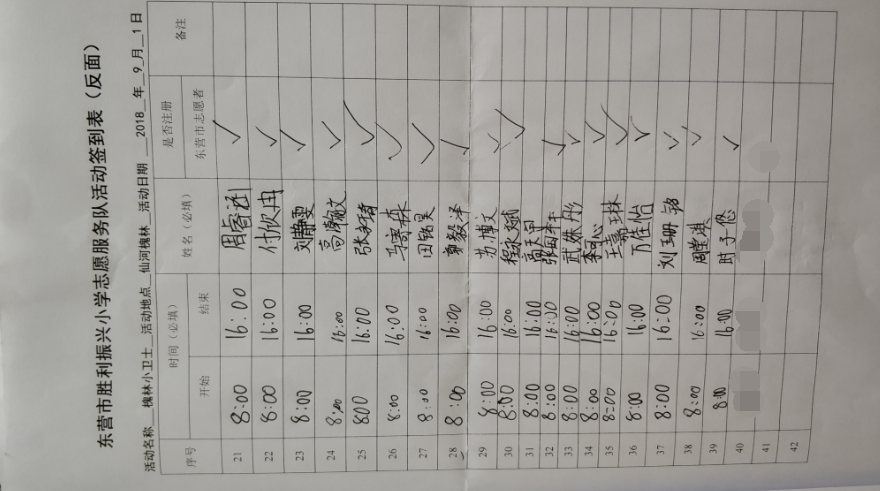 东营市胜利振兴小学志愿服务队活动签到表（反面）
活动名称__槐林小卫士__活动地点__仙河槐林__活动日期__2018__年__9__月__1日
序号 时间（必填） 姓名（必填） 是否注册 备注
开始 结束 东营市志愿者
21 8:00 16:00 周睿涵 ✓
22 8:00 16:00 付欣冉 ✓
23 8:00 16:00 刘静雯 ✓
24 8:00 16:00 高瀚文 ✓
25 800 16:00 ✓
26 8:00 16:00 ✓
27 8:00 16:00 田铭昊 ✓
28 8:00 16:00 ✓
29 8:00 16:00 苏博文 ✓
30 8:00 16:00 程永斌 ✓
31 8:00 16:00 高天昊
32 8:00 16:00 ✓
33 8:00 16:00 武姝彤 ✓
34 8:00 16:00 李可心 ✓
35 8:00 16:00 王嘉琳 ✓
36 8:00 16:00 万佳怡 ✓
37 8:00 16:00 刘珊铭 ✓
38 8:00 16:00 ✓
39 8:00 16:00 时子恩 ✓
40
41
42